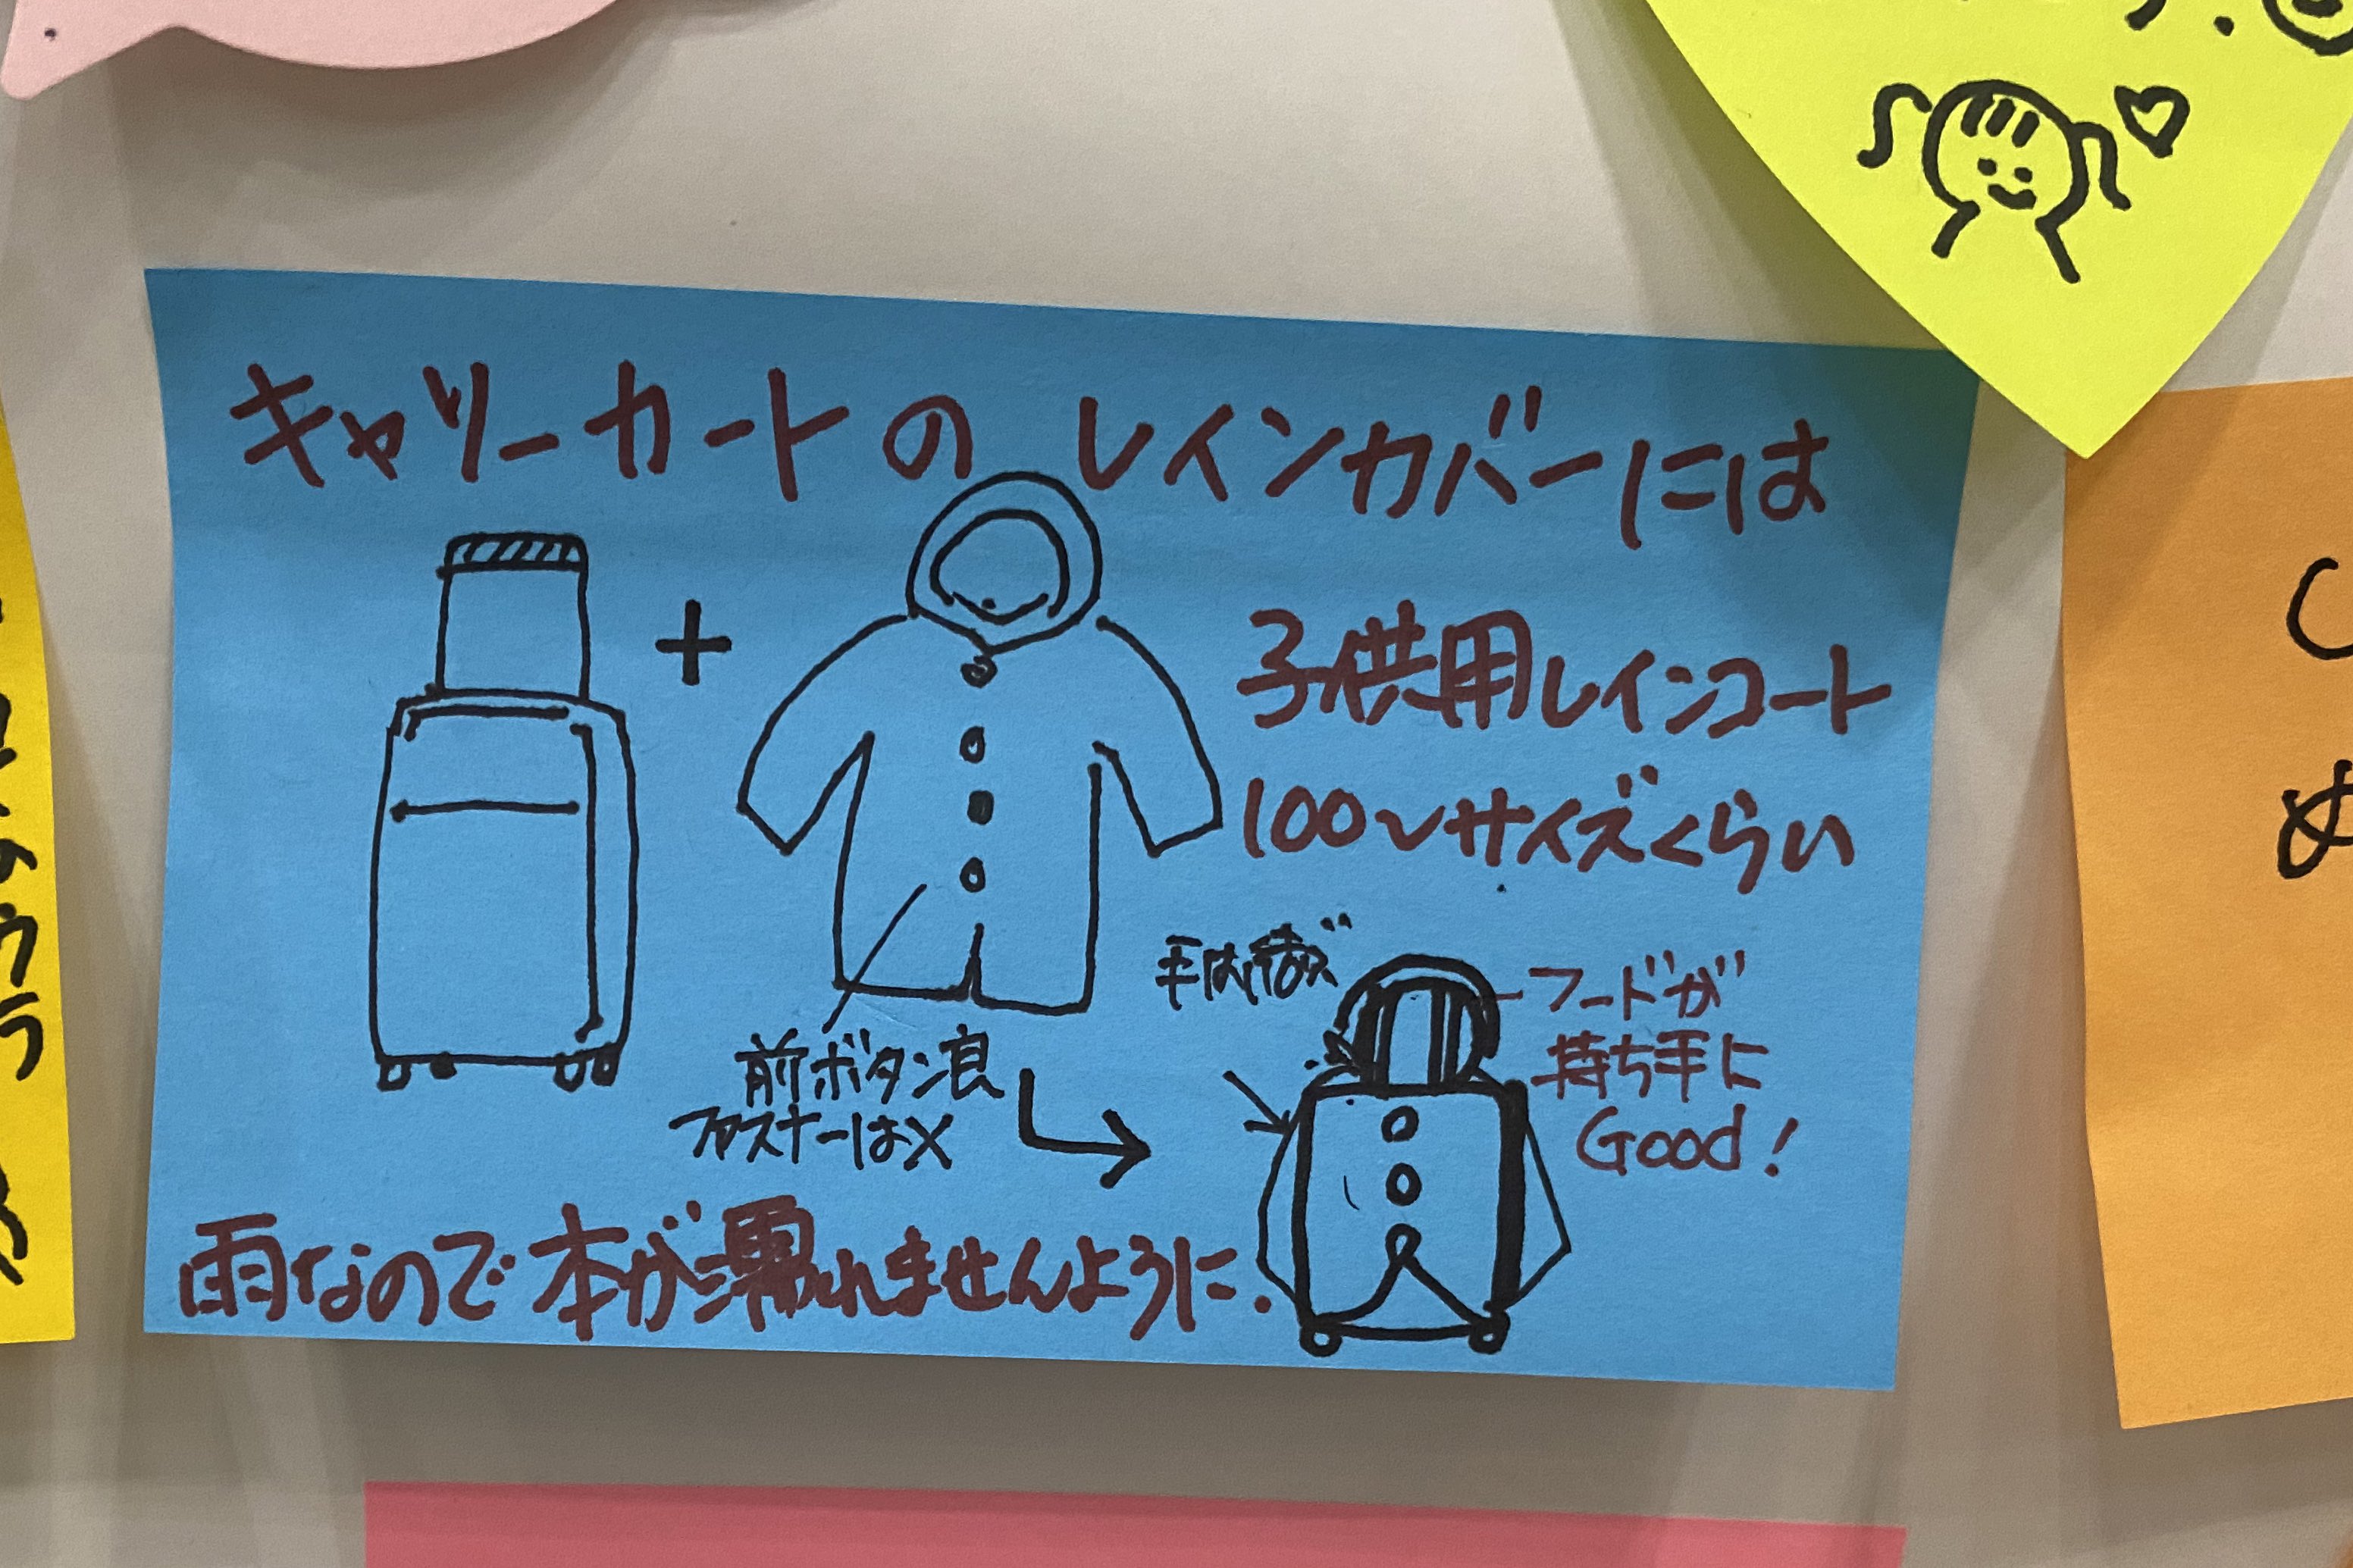 キャリーカートの レインカバーには
+
子供用レインコート
100〜サイズくらい
手は
フードが
持ち手に
Good!
前ボタン良
ファスナーは×
雨なので本が濡れませんように.